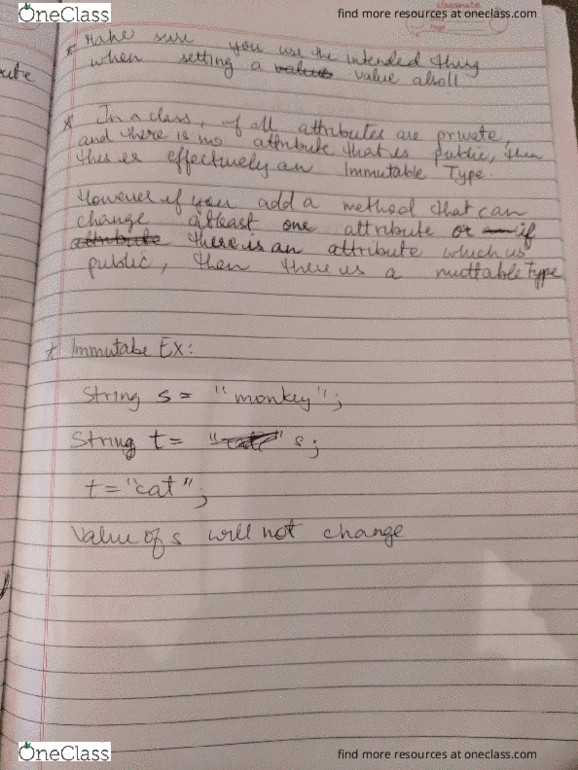 OneClass
find more resources at oneclass.com
classmate
* Make sure you use the intended thing
when setting a value value also!!
* In a class, if all attributes are private,
and there is no attribute that is public, then
this is effectively an Immutable Type.
However if you add a method that can
change atleast one attribute or if
attribute there is an attribute which is
public, then there is a muttable Type
* Immutabe Ex:
String s = "monkey";
String t = "cat" s;
t = "cat";
Value of s will not change
OneClass
find more resources at oneclass.com